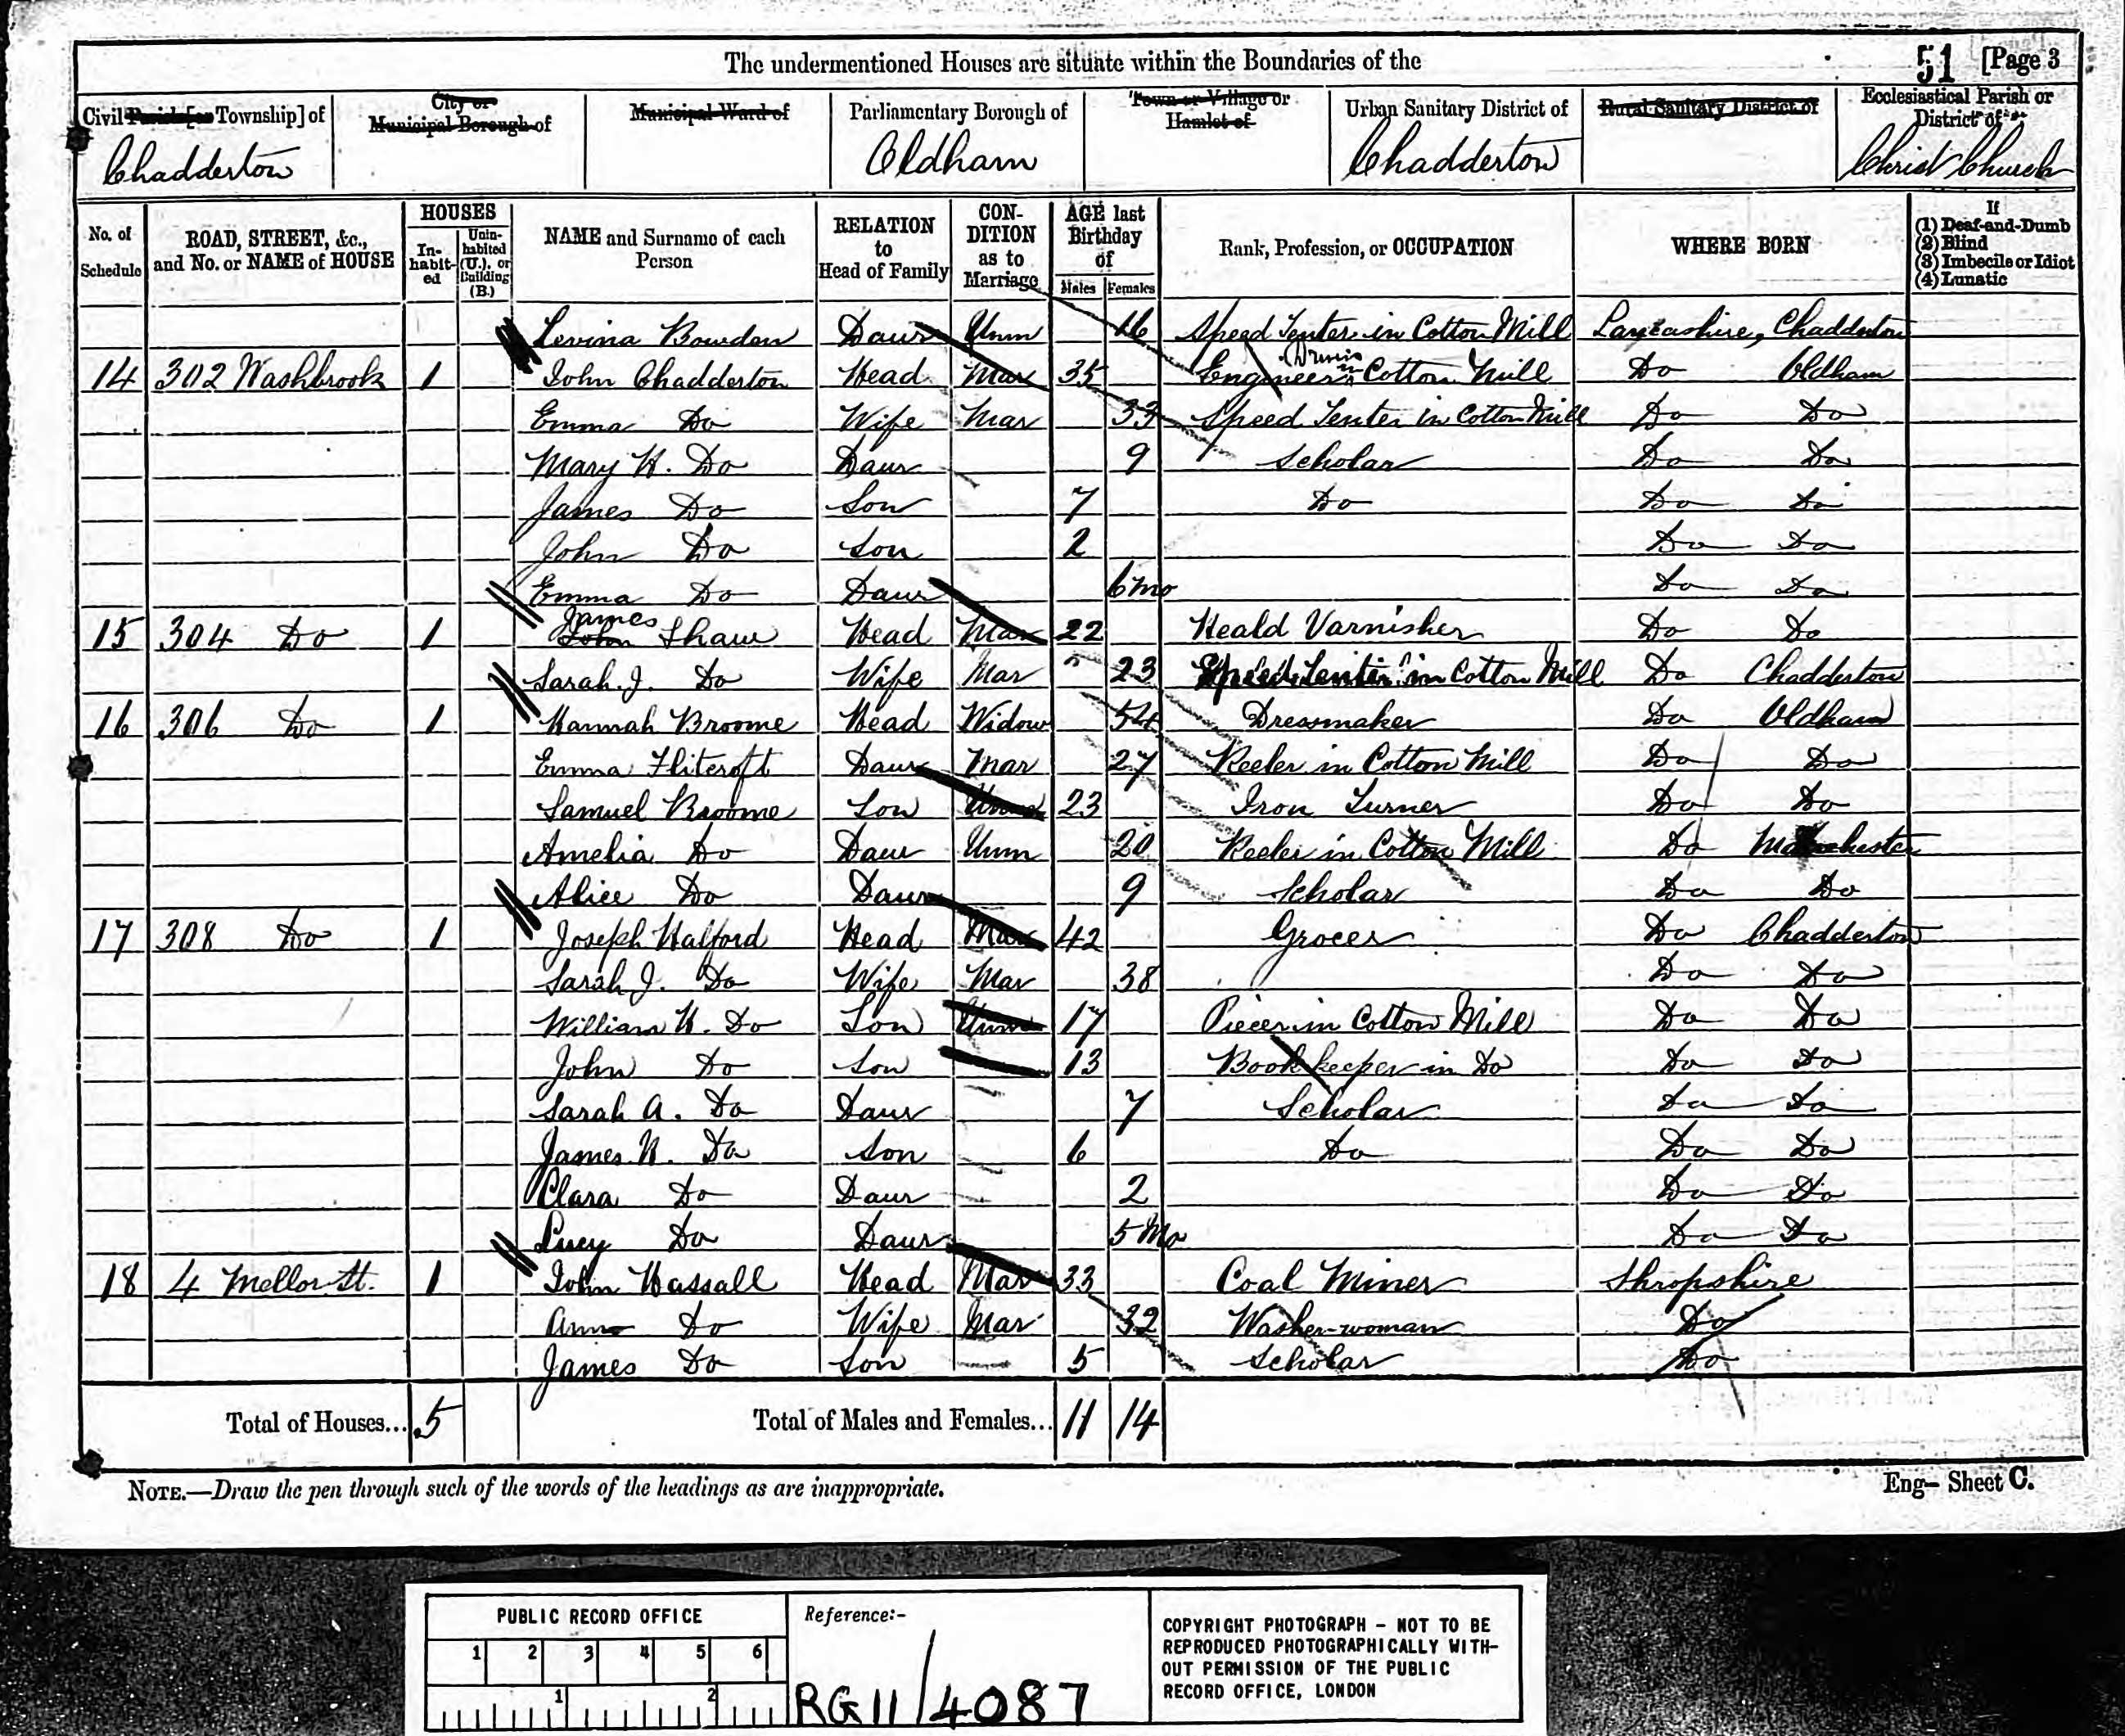 The undermentioned Houses are situate within the Boundaries of the
51 [Page 3
Civil Parish [or Township] of
City or Municipal Borough of
Municipal Ward of
Parliamentary Borough of
Town or Village or Hamlet of
Urban Sanitary District of
Rural Sanitary District of
Ecclesiastical Parish or District of
Chadderton Oldham Chadderton Christ Church
No. of Schedule
ROAD, STREET, &c., and No. or NAME of HOUSE
HOUSES
In-habit-ed
Unin-habited (U.), or Building (B.)
NAME and Surname of each Person
RELATION to Head of Family
CON-DITION as to Marriage
AGE last Birthday of
Males Females
Rank, Profession, or OCCUPATION
WHERE BORN
If
(1) Deaf-and-Dumb
(2) Blind
(3) Imbecile or Idiot
(4) Lunatic
Levina Bowden Daur Unm 16 Speed Tenter in Cotton Mill Lancashire, Chadderton
14 302 Washbrook 1 John Chadderton Head Mar 35 Engineer in Cotton Mill Do Oldham
Emma Do Wife Mar 33 Speed Tenter in Cotton Mill Do Do
Mary H. Do Daur 9 Scholar Do Do
James Do Son 7 Do Do Do
John Do Son 2 Do Do
Emma Do Daur 6 mo Do Do
15 304 Do 1 John James Shaw Head Mar 22 Heald Varnisher Do Do
Sarah J. Do Wife Mar 23 Speed Tenter in Cotton Mill Do Chadderton
16 306 Do 1 Hannah Broome Head Widow 54 Dressmaker Do Oldham
Emma Flitcroft Daur Mar 27 Reeler in Cotton Mill Do Do
Samuel Broome Son Unm 23 Iron Turner Do Do
Amelia Do Daur Unm 20 Reeler in Cotton Mill Do Manchester
Alice Do Daur 9 Scholar Do Do
17 308 Do 1 Joseph Halford Head Mar 42 Grocer Do Chadderton
Sarah J. Do Wife Mar 38 Do Do
William H. Do Son Unm 17 Piecer in Cotton Mill Do Do
John Do Son 13 Book keeper in Do Do Do
Sarah A. Do Daur 7 Scholar Do Do
James H. Do Son 6 Do Do Do
Clara Do Daur 2 Do Do
Lucy Do Daur 5 Mo Do Do
18 4 Mellor St. 1 John Hassall Head Mar 33 Coal Miner Shropshire
Ann Do Wife Mar 32 Washer-woman Do
James Do Son 5 Scholar Do
Total of Houses... 5 Total of Males and Females... 11 14
NOTE.—Draw the pen through such of the words of the headings as are inappropriate.
Eng— Sheet C.
PUBLIC RECORD OFFICE
1 2 3 4 5 6
1 2
Reference:-
RG 11/4087
COPYRIGHT PHOTOGRAPH - NOT TO BE
REPRODUCED PHOTOGRAPHICALLY WITH-
OUT PERMISSION OF THE PUBLIC
RECORD OFFICE, LONDON